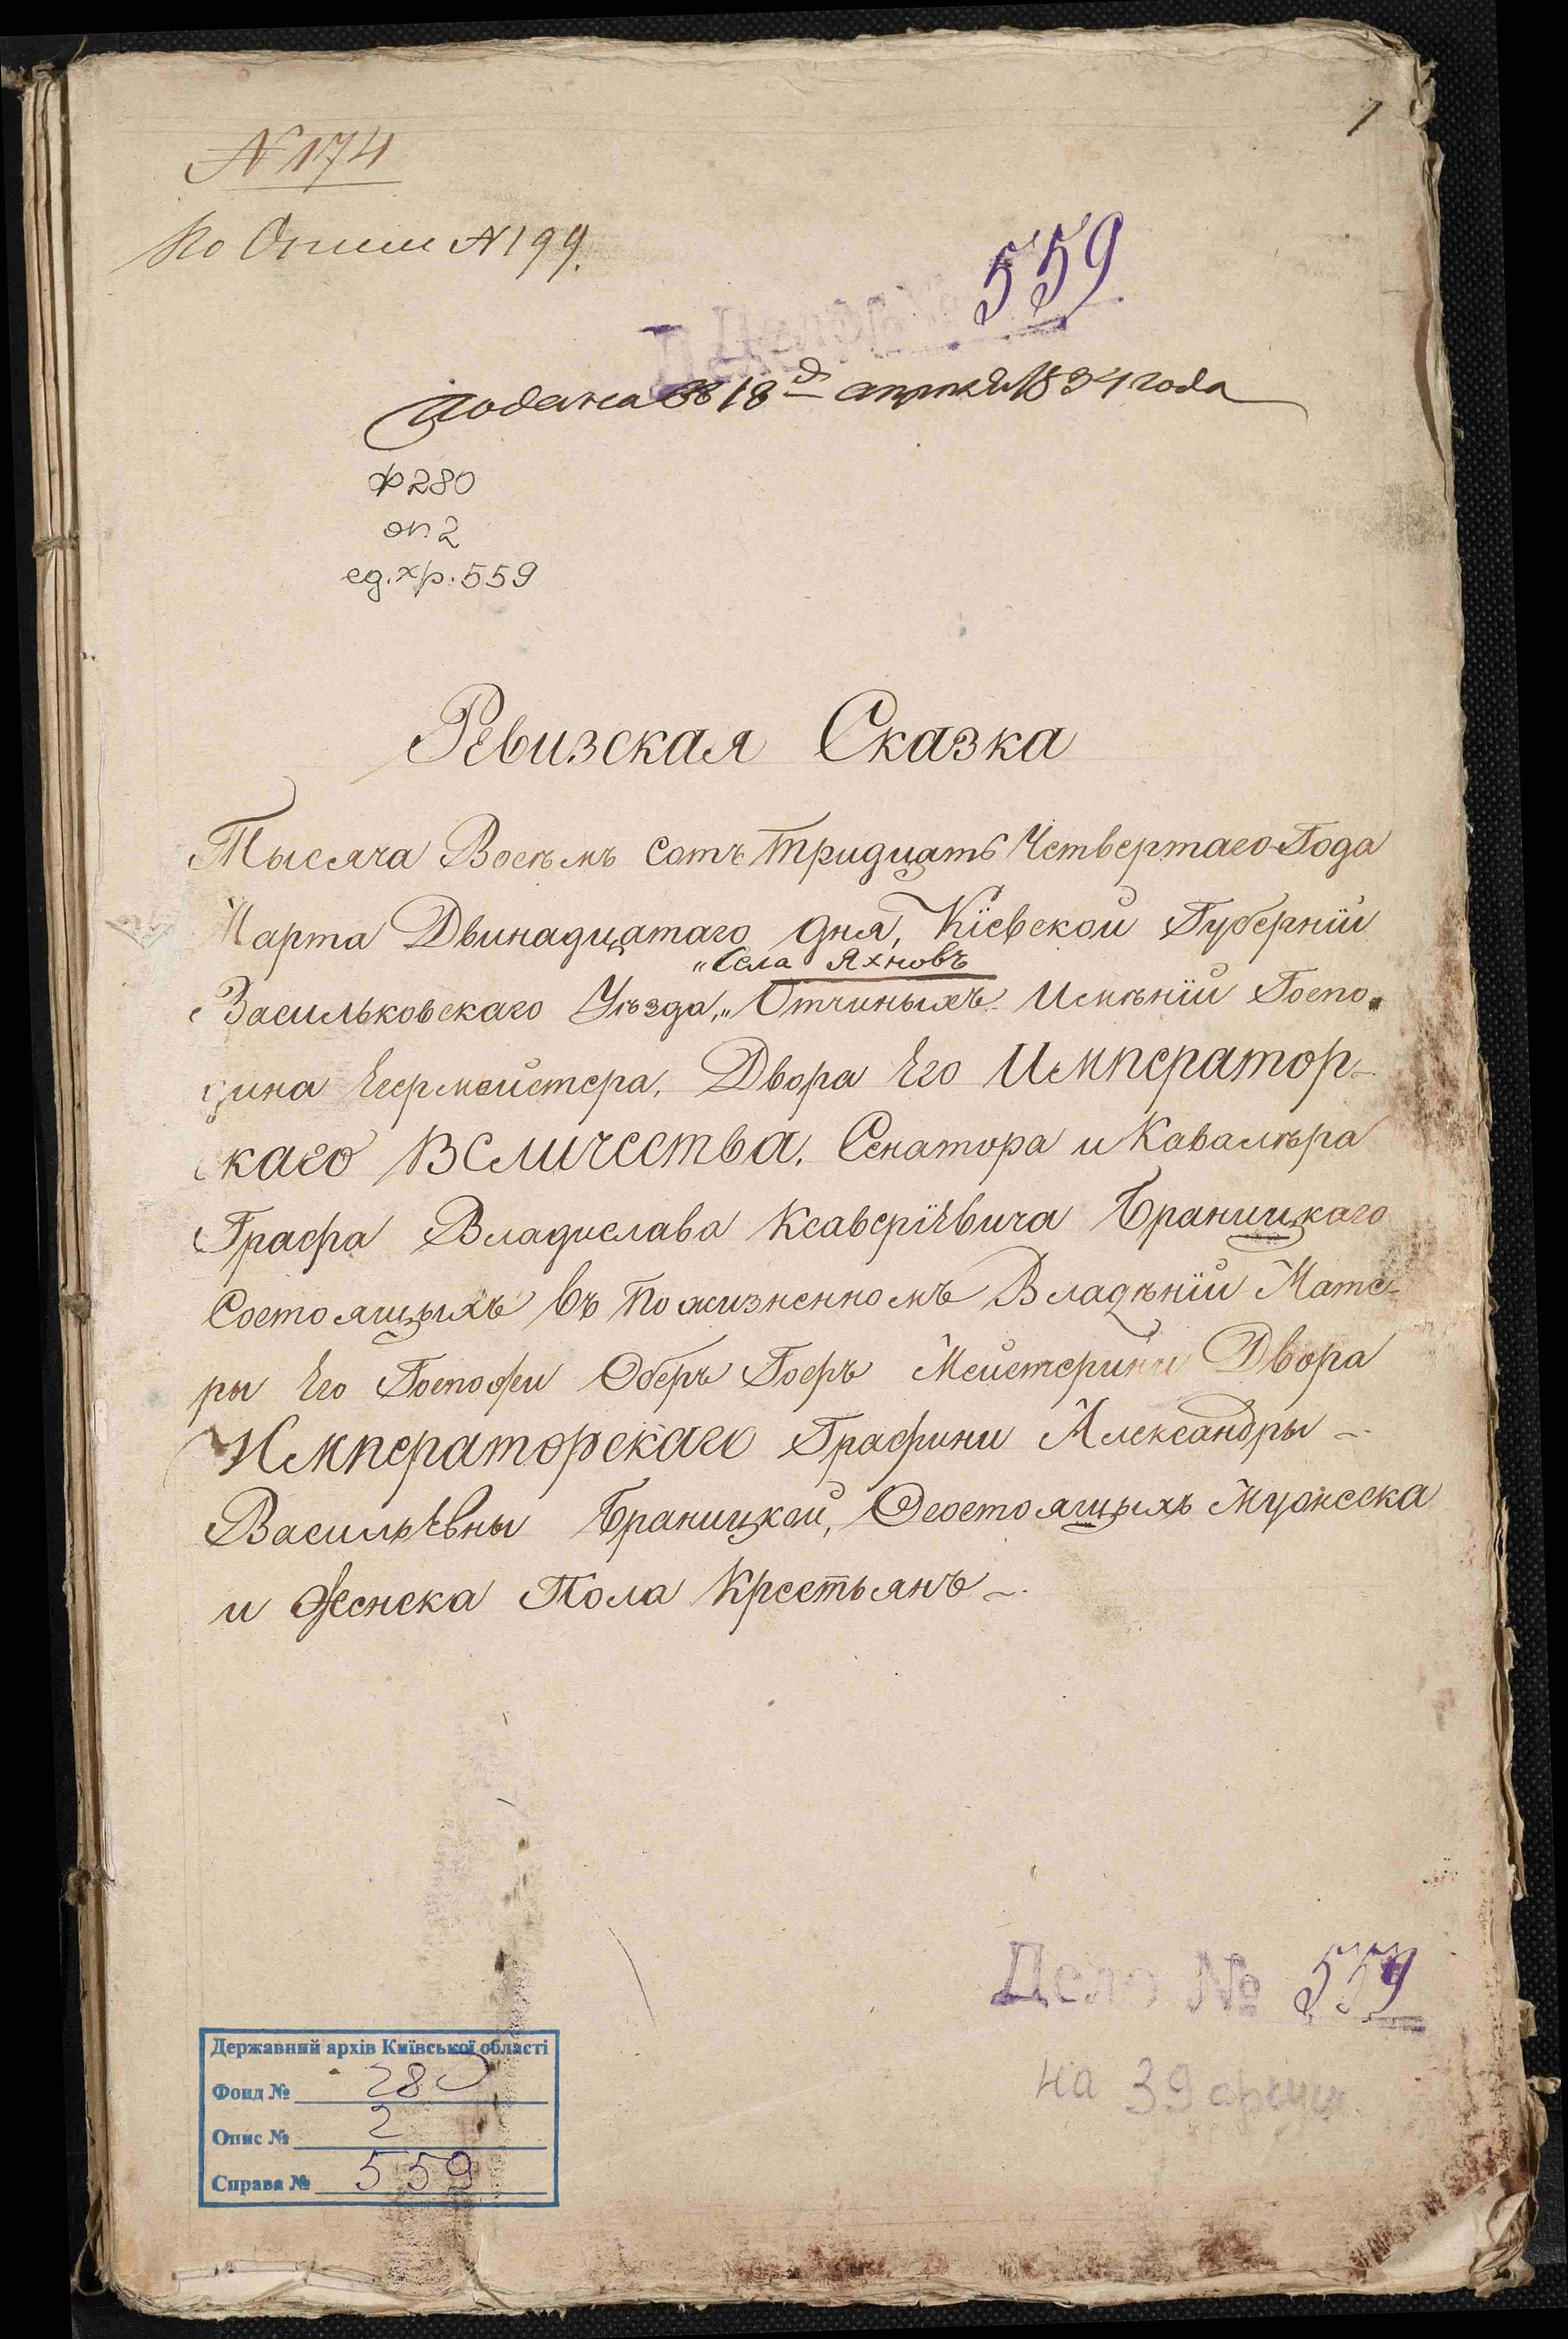 1
N 174
По Описи N 199.
559
Подана въ 18 д апреля 1834 года
ф 280
оп. 2
ед. хр. 559
Ревизская Сказка
Тысяча Восѣмъ Сотъ Тридцать Четвертаго Года
Марта Двинадцатаго дня, Кіевской Губерніи
„Села Яхновъ
Засильковскаго Уѣзда, „ Отчиныхъ Имѣніи Госпо-
дина Егермейстера, Двора Его Император-
скаго Величества, Сенатора и Кавалѣра
Графа Владислава Ксаверіевича Браницкаго
Состоящыхъ въ Пожизненномъ Владѣніи Мате-
ры Его Госпожи Оберъ Гофъ Мейстерини Двора
Императорскаго Графини Александры
Васильевны Браницкой, О состоящыхъ Мужеска
и Женска Пола Крестьянъ
Дело № 559
на 39
Державний архів Київської області
Фонд № 280
Опис № 2
Справа № 559